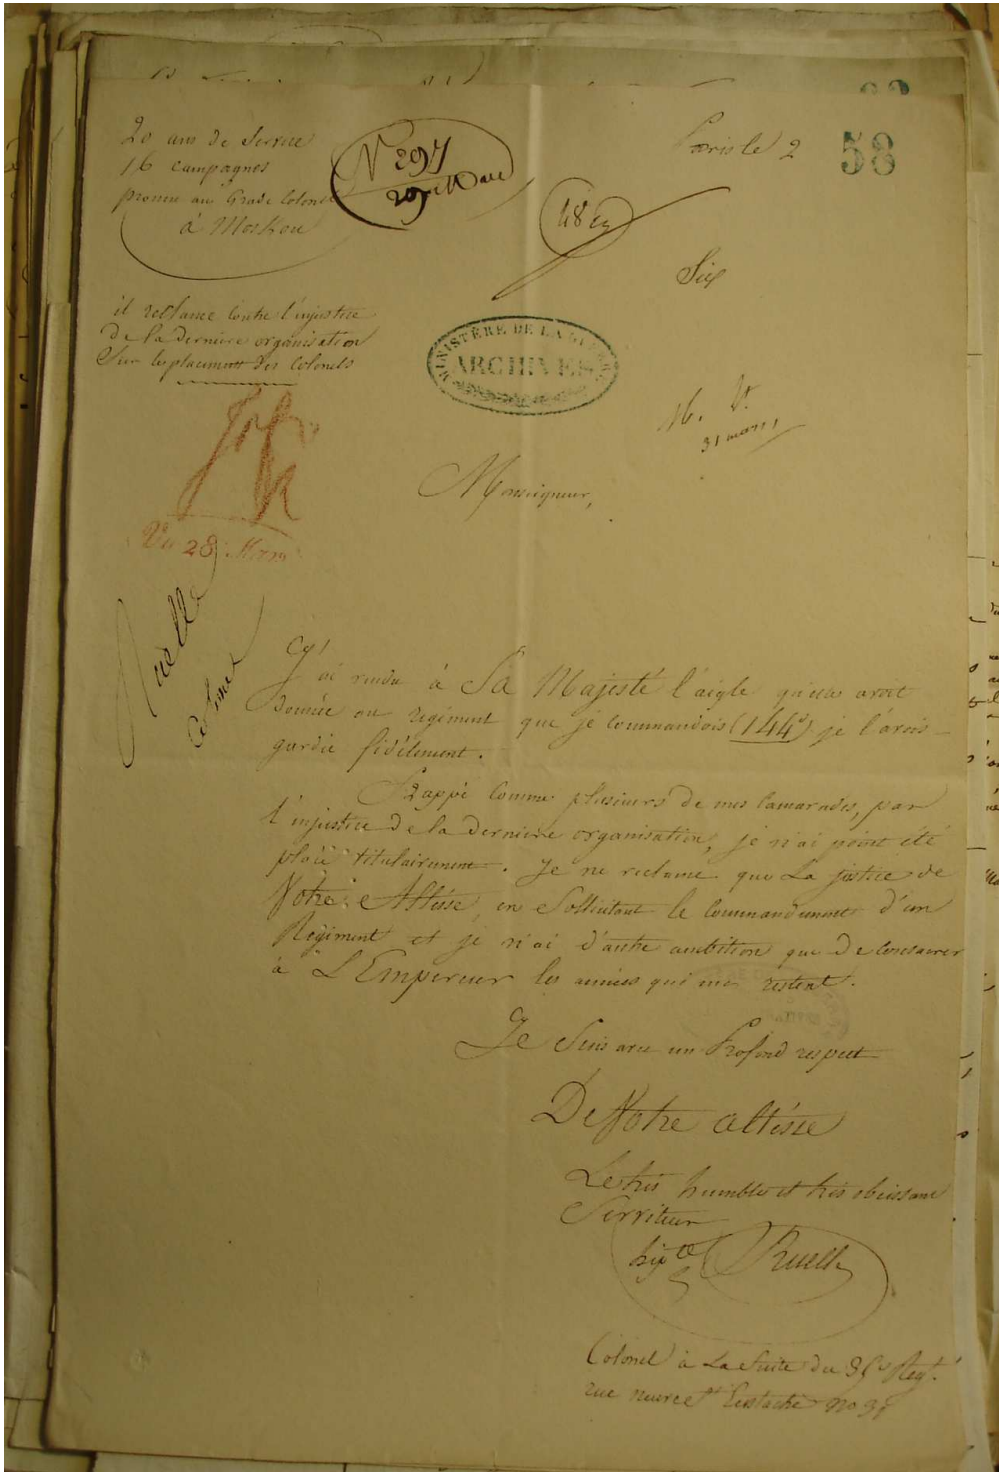 20 ans de Service
16 campagnes
promu au Grade Colonel
à Moskou
N 297
Paris le 2
58
48
Sup
il reclame contre l'injustice
de la derniere organisation
Sur le placement des Colonels
MINISTÈRE DE LA GUERRE
ARCHIVES
31 mars
Monseigneur,
Vu 28 Mars
Ruelle
Colonel
J'ai rendu à Sa Majesté l'aigle qu'elle avoit
donnée au regiment que je commandois (144e) je l'avois
gardée fidélement.
Frappé comme plusieurs de mes Camarades, par
l'injustice de la derniere organisation, je n'ai point été
placé titulairement. Je ne reclame que La justice de
Votre Altésse, en Sollicitant le Commandement d'un
Régiment et je n'ai d'autre ambition que de consacrer
à L'Empereur les années qui me restent.
Je Suis avec un Profond respect
De Votre altésse
Le très humble et très obeissant
Serviteur
hip te Ruelle
Colonel à La Suite du Regt.
rue neuve St Eustache no